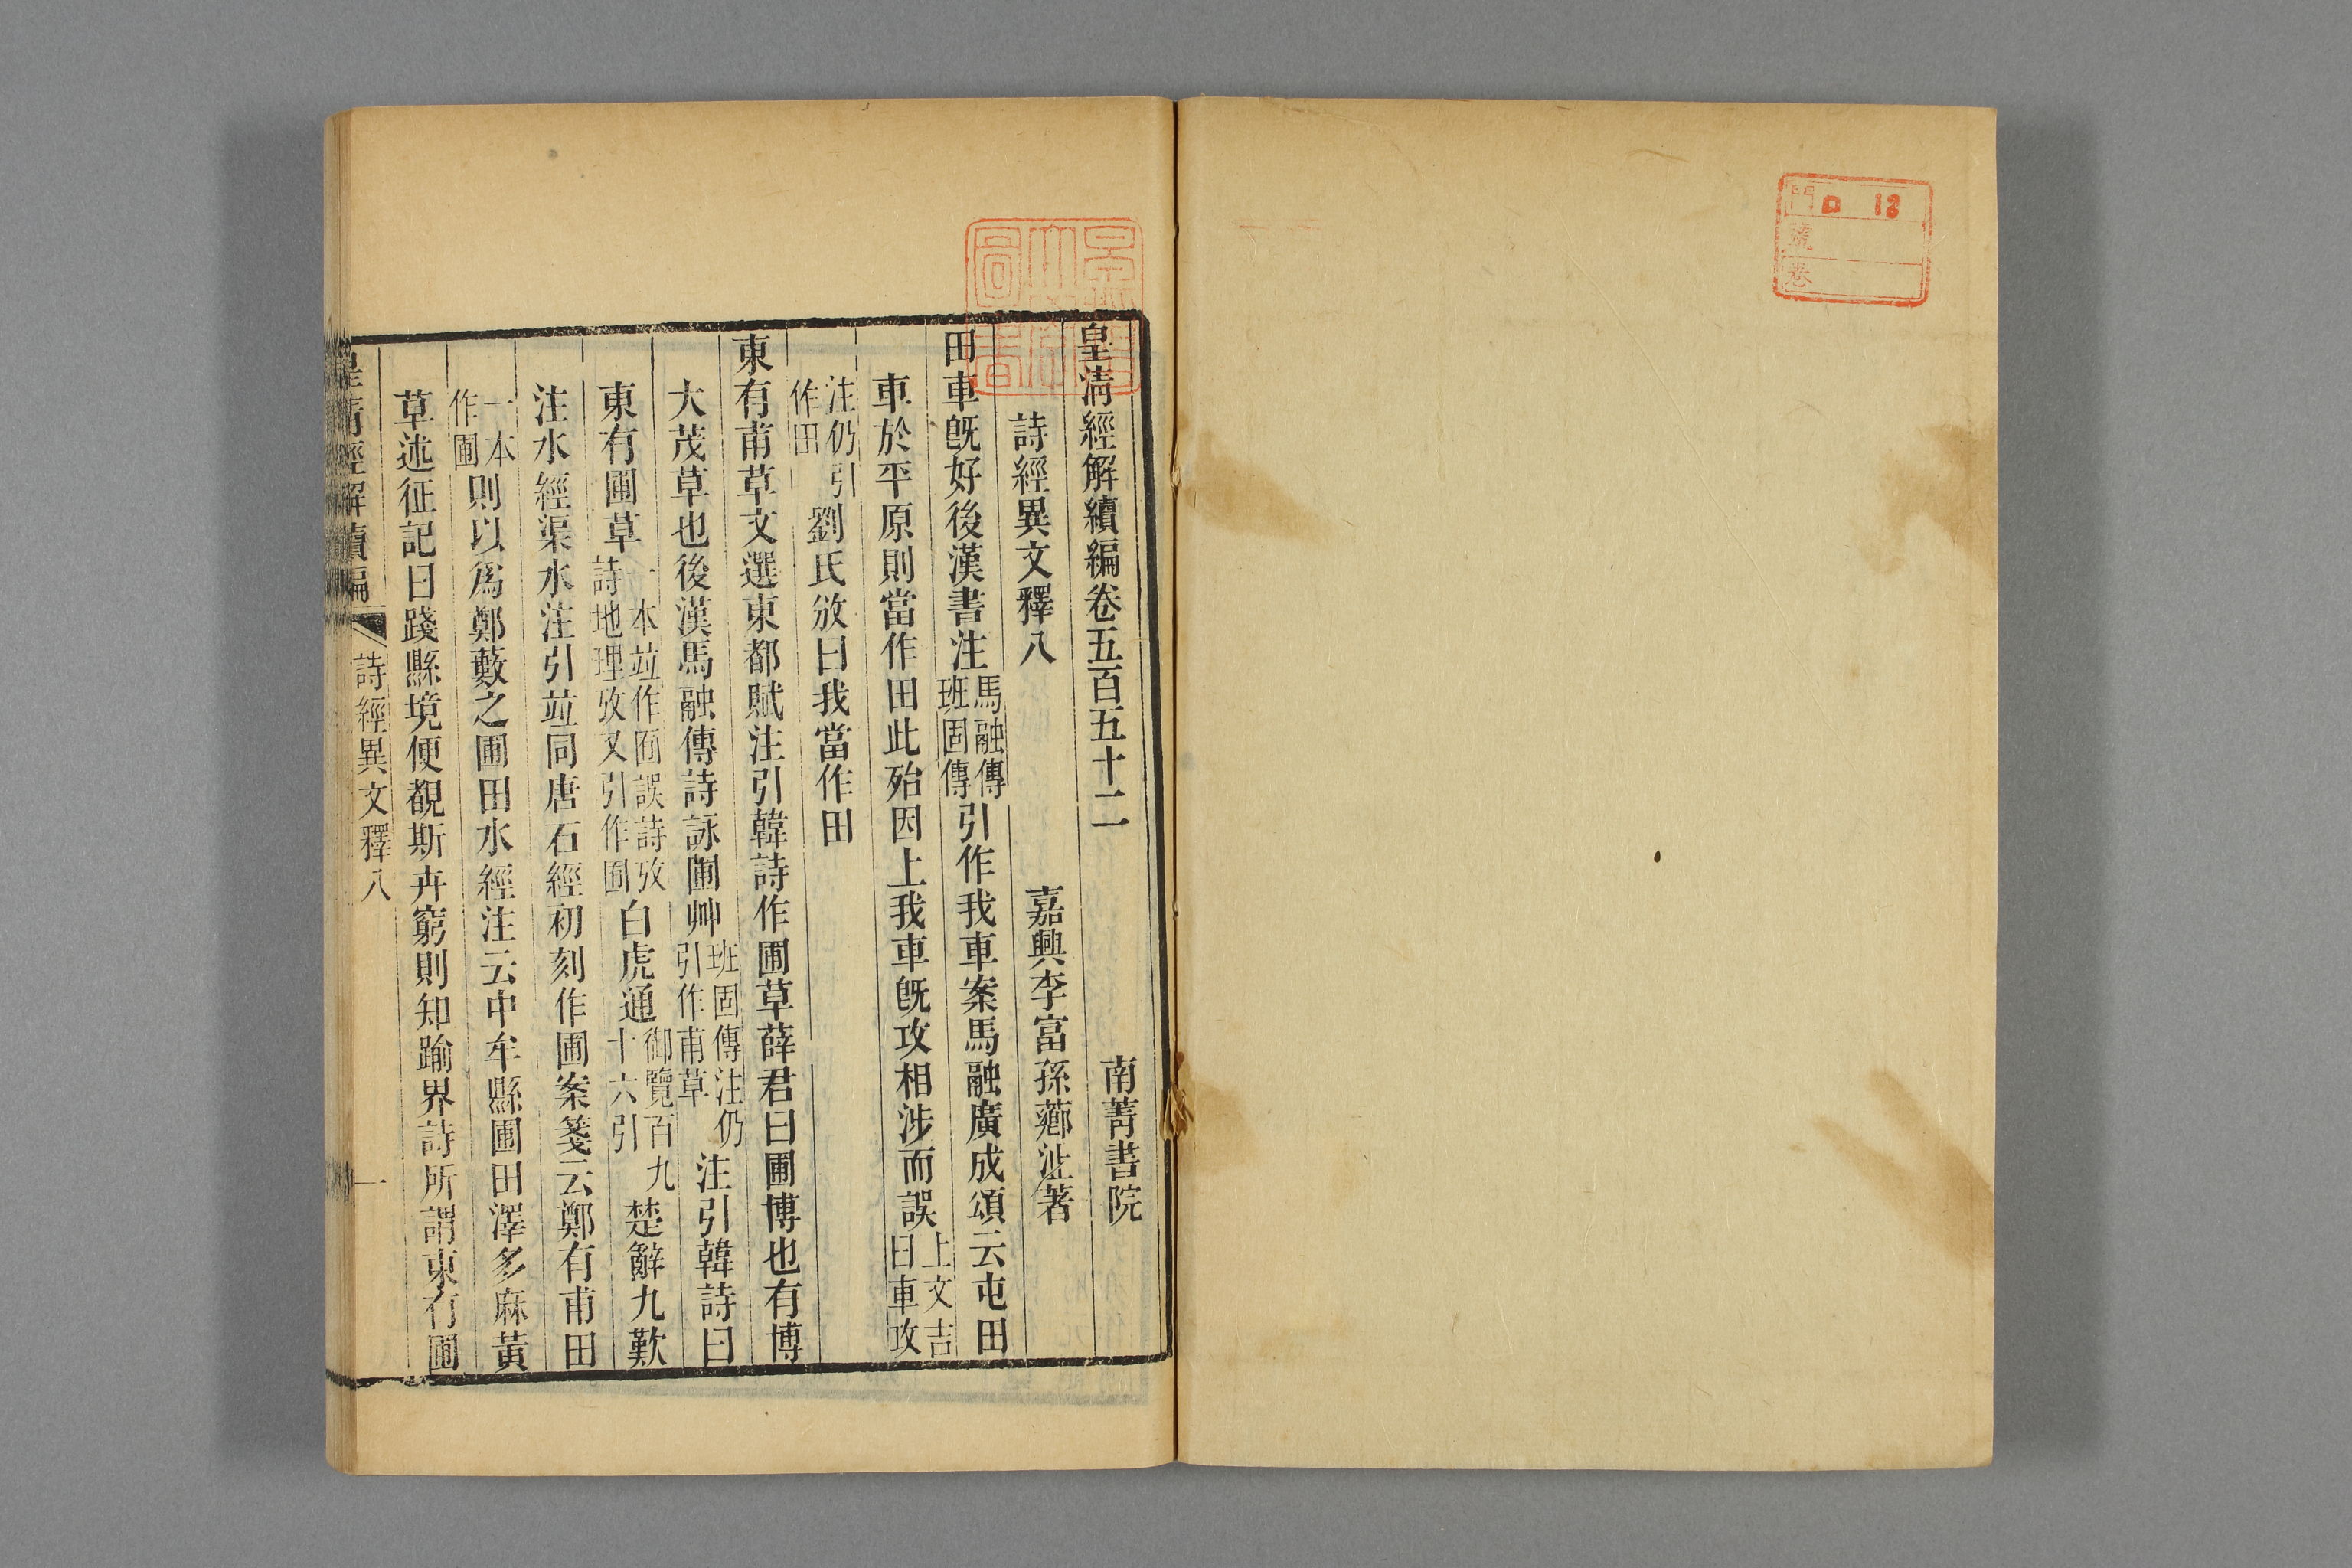 門 ロ 13
號
卷
皇清經解續編卷五百五十二 南菁書院
詩經異文釋八 嘉興李富孫薌沚著
田車旣好後漢書注馬融傳班固傳引作我車案馬融廣成頌云屯田
車於平原則當作田此殆因上我車旣攻相涉而誤上文吉日車攻
注仍引作田劉氏攽曰我當作田
東有甫草文選東都賦注引韓詩作圃草薛君曰圃博也有博
大茂草也後漢馬融傳詩詠圃艸班固傳注仍引作甫草注引韓詩曰
東有圃草一本竝作囿誤詩攷詩地理攷又引作圃白虎通御覽百九十六引楚辭九歎
注水經渠水注引竝同唐石經初刻作圃案箋云鄭有甫田
一本作圃則以爲鄭藪之圃田水經注云中牟縣圃田澤多麻黃
草述征記曰踐縣境便覩斯卉窮則知踰界詩所謂東有圃
皇清經解續編 詩經異文釋八 一